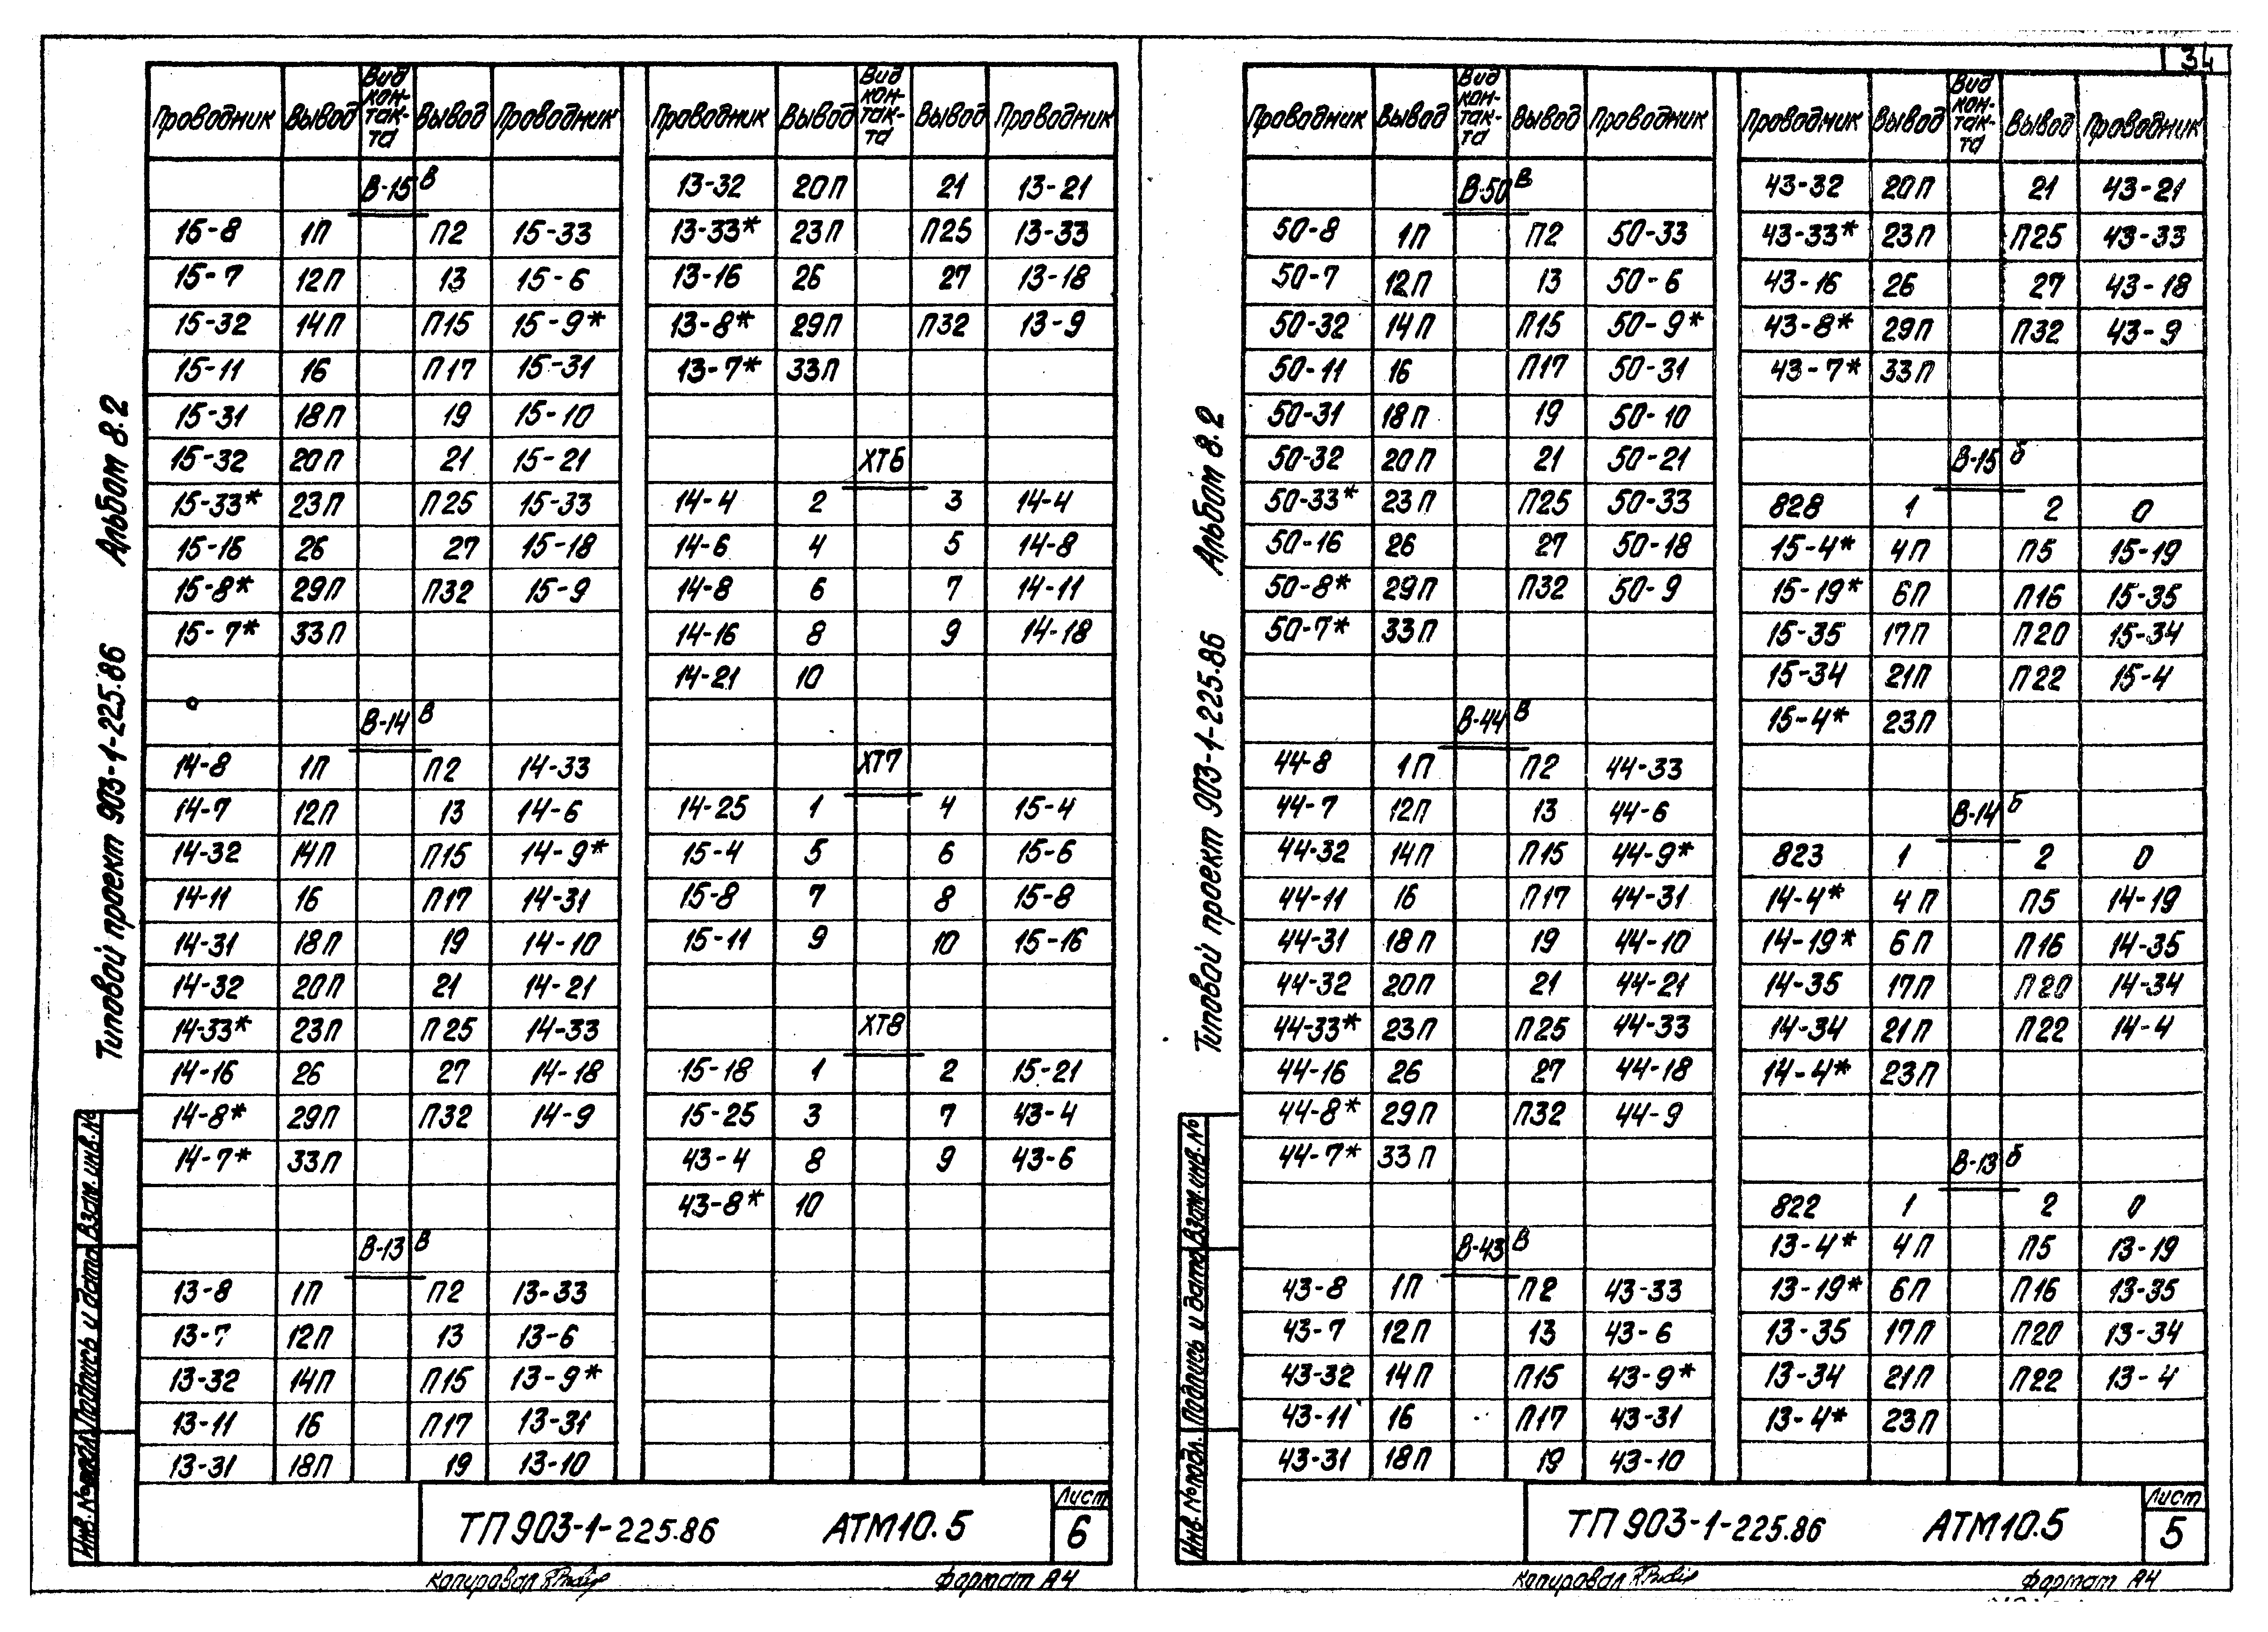 34
Альбом 8.2
Типовой проект 903-1-225.86
Взам. инв. №
Подпись и дата
Инв. № подл.
Проводник Вывод Вид кон-так-та Вывод Проводник
В-15 В
15-8 1П П2 15-33
15-7 12П 13 15-6
15-32 14П П15 15-9*
15-11 16 П17 15-31
15-31 18П 19 15-10
15-32 20П 21 15-21
15-33* 23П П25 15-33
15-16 26 27 15-18
15-8* 29П П32 15-9
15-7* 33П
В-14 В
14-8 1П П2 14-33
14-7 12П 13 14-6
14-32 14П П15 14-9*
14-11 16 П17 14-31
14-31 18П 19 14-10
14-32 20П 21 14-21
14-33* 23П П25 14-33
14-16 26 27 14-18
14-8* 29П П32 14-9
14-7* 33П
В-13 В
13-8 1П П2 13-33
13-7 12П 13 13-6
13-32 14П П15 13-9*
13-11 16 П17 13-31
13-31 18П 19 13-10
Проводник Вывод Вид кон-так-та Вывод Проводник
13-32 20П 21 13-21
13-33* 23П П25 13-33
13-16 26 27 13-18
13-8* 29П П32 13-9
13-7* 33П
ХТ6
14-4 2 3 14-4
14-6 4 5 14-8
14-8 6 7 14-11
14-16 8 9 14-18
14-21 10
ХТ7
14-25 1 4 15-4
15-4 5 6 15-6
15-8 7 8 15-8
15-11 9 10 15-16
ХТ8
15-18 1 2 15-21
15-25 3 7 43-4
43-4 8 9 43-6
43-8* 10
ТП 903-1-225.86 АТМ10.5
Лист
6
Копировал
Формат А4
Альбом 8.2
Типовой проект 903-1-225.86
Взам. инв. №
Подпись и дата
Инв. № подл.
Проводник Вывод Вид кон-так-та Вывод Проводник
В-50 В
50-8 1П П2 50-33
50-7 12П 13 50-6
50-32 14П П15 50-9*
50-11 16 П17 50-31
50-31 18П 19 50-10
50-32 20П 21 50-21
50-33* 23П П25 50-33
50-16 26 27 50-18
50-8* 29П П32 50-9
50-7* 33П
В-44 В
44-8 1П П2 44-33
44-7 12П 13 44-6
44-32 14П П15 44-9*
44-11 16 П17 44-31
44-31 18П 19 44-10
44-32 20П 21 44-21
44-33* 23П П25 44-33
44-16 26 27 44-18
44-8* 29П П32 44-9
44-7* 33П
В-43 В
43-8 1П П2 43-33
43-7 12П 13 43-6
43-32 14П П15 43-9*
43-11 16 П17 43-31
43-31 18П 19 43-10
Проводник Вывод Вид кон-так-та Вывод Проводник
43-32 20П 21 43-21
43-33* 23П П25 43-33
43-16 26 27 43-18
43-8* 29П П32 43-9
43-7* 33П
В-15 Б
828 1 2 0
15-4* 4П П5 15-19
15-19* 6П П16 15-35
15-35 17П П20 15-34
15-34 21П П22 15-4
15-4* 23П
В-14 Б
823 1 2 0
14-4* 4П П5 14-19
14-19* 6П П16 14-35
14-35 17П П20 14-34
14-34 21П П22 14-4
14-4* 23П
В-13 Б
822 1 2 0
13-4* 4П П5 13-19
13-19* 6П П16 13-35
13-35 17П П20 13-34
13-34 21П П22 13-4
13-4* 23П
ТП 903-1-225.86 АТМ10.5
Лист
5
Копировал
Формат А4